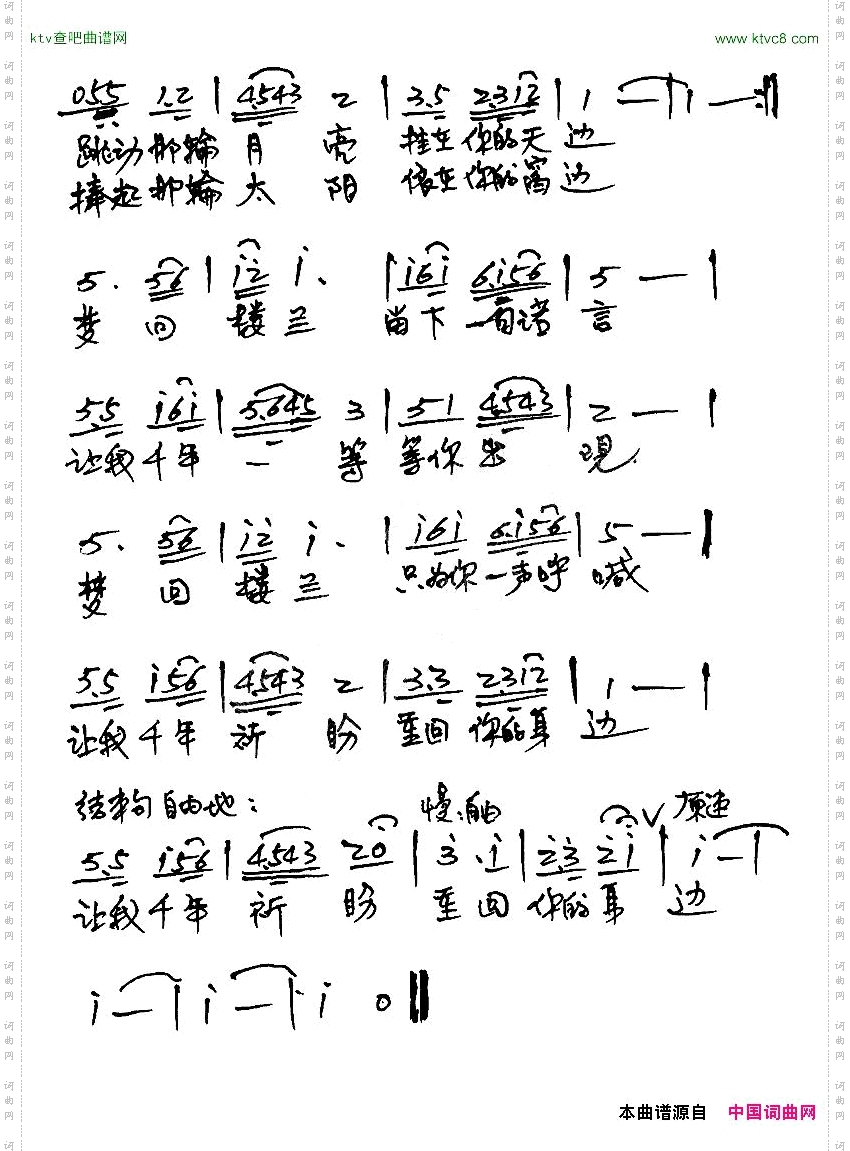 ktv查吧曲谱网 www.ktvc8.com
055 1.2 | 4543 2 | 3.5 2312 | 1 — | 1 — :||
跳动那轮月亮 挂在你的天边
捧起那轮太阳 依在你的窗边
5. 56 | i2 i. | i6i 6i56 | 5 — |
梦回楼兰 留下一句诺言
5.5 i6i | 5.645 3 | 51 4543 | 2 — |
让我千年一等 等你出现
5. 56 | i2 i. | i6i 6.i56 | 5 — |
梦回楼兰 只为你一声呼喊
5.5 i56 | 4543 2 | 3.3 2312 | 1 — |
让我千年祈盼 重回你的身边
结束句自由地: 慢.自由 原速
5.5 i56 | 4.543 20 | 3 . i | 23 2i | i — |
让我千年祈盼 重回你的身边
i — | i — | i 0 ||
本曲谱源自 中国词曲网